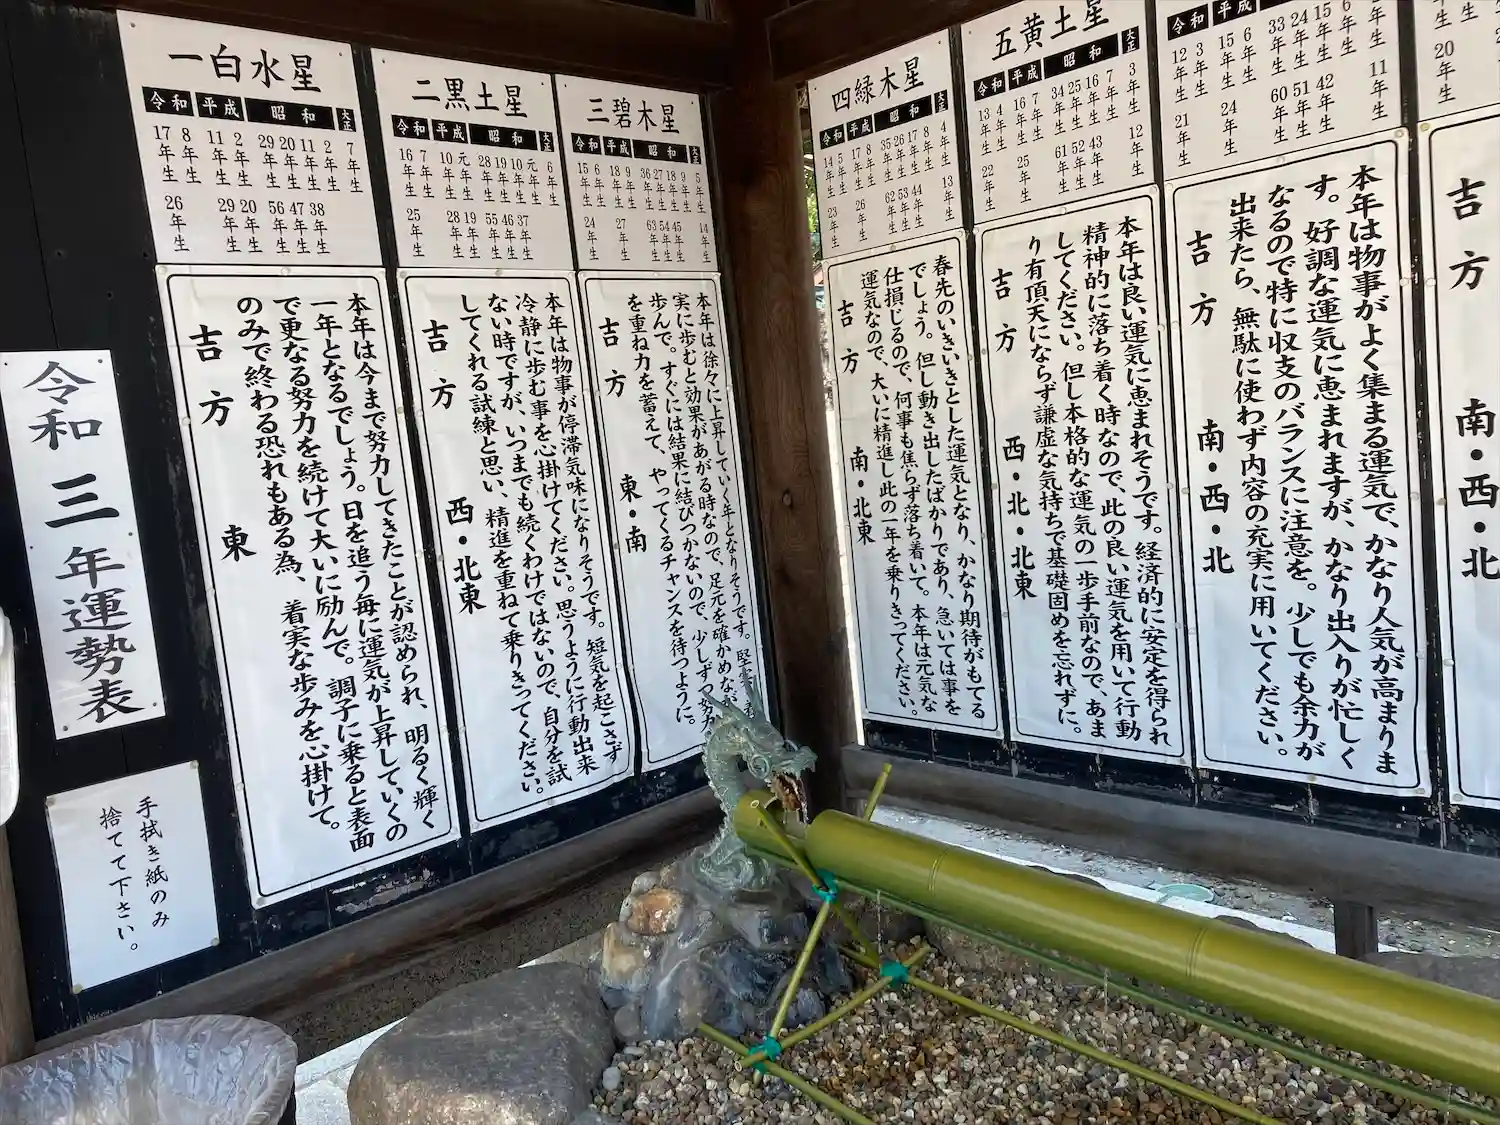 令和三年運勢表
手拭き紙のみ
捨てて下さい。
一白水星
令和 平成 昭和 大正
17年生 8年生 11年生 2年生 29年生 20年生 11年生 2年生 7年生
26年生 29年生 20年生 56年生 47年生 38年生
本年は今まで努力してきたことが認められ、明るく輝く
一年となるでしょう。日を追う毎に運気が上昇していくの
で更なる努力を続けて大いに励んで。調子に乗ると表面
のみで終わる恐れもある為、着実な歩みを心掛けて。
吉方 東
二黒土星
令和 平成 昭和 大正
16年生 7年生 10年生 元年生 28年生 19年生 10年生 元年生 6年生
25年生 28年生 19年生 55年生 46年生 37年生
本年は物事が停滞気味になりそうです。短気を起こさず
冷静に歩む事を心掛けてください。思うように行動出来
ない時ですが、いつまでも続くわけではないので、自分を試
してくれる試練と思い、精進を重ねて乗りきってください。
吉方 西・北東
三碧木星
令和 平成 昭和 大正
15年生 6年生 18年生 9年生 36年生 27年生 18年生 9年生 5年生
24年生 27年生 63年生 54年生 45年生 14年生
本年は徐々に上昇していく年となりそうです。堅実
実に歩むと効果があがる時なので、足元を確かめなが
歩んで。すぐには結果に結びつかないので、少しずつ努力
を重ね力を蓄えて、やってくるチャンスを待つように。
吉方 東・南
四緑木星
令和 平成 昭和 大正
14年生 5年生 17年生 8年生 35年生 26年生 17年生 8年生 4年生
23年生 26年生 62年生 53年生 44年生 13年生
春先のいきいきとした運気となり、かなり期待がもてる
でしょう。但し動き出したばかりであり、急いては事を
仕損じるので、何事も焦らず落ち着いて。本年は元気な
運気なので、大いに精進し此の一年を乗りきってください。
吉方 南・北東
五黄土星
令和 平成 昭和 大正
13年生 4年生 16年生 7年生 34年生 25年生 16年生 7年生 3年生
22年生 25年生 61年生 52年生 43年生 12年生
本年は良い運気に恵まれそうです。経済的に安定を得られ
精神的に落ち着く時なので、此の良い運気を用いて行動
してください。但し本格的な運気の一歩手前なので、あま
り有頂天にならず謙虚な気持ちで基礎固めを忘れずに。
吉方 西・北・北東
令和 平成
12年生 3年生 15年生 6年生 33年生 24年生 15年生 6年生
21年生 24年生 60年生 51年生 42年生 11年生
本年は物事がよく集まる運気で、かなり人気が高まりま
す。好調な運気に恵まれますが、かなり出入りが忙しく
なるので特に収支のバランスに注意を。少しでも余力が
出来たら、無駄に使わず内容の充実に用いてください。
吉方 南・西・北
20年生
吉方 南・西・北